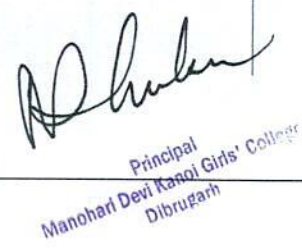 Principal
Manohari Devi Kanoi Girls' College
Dibrugarh